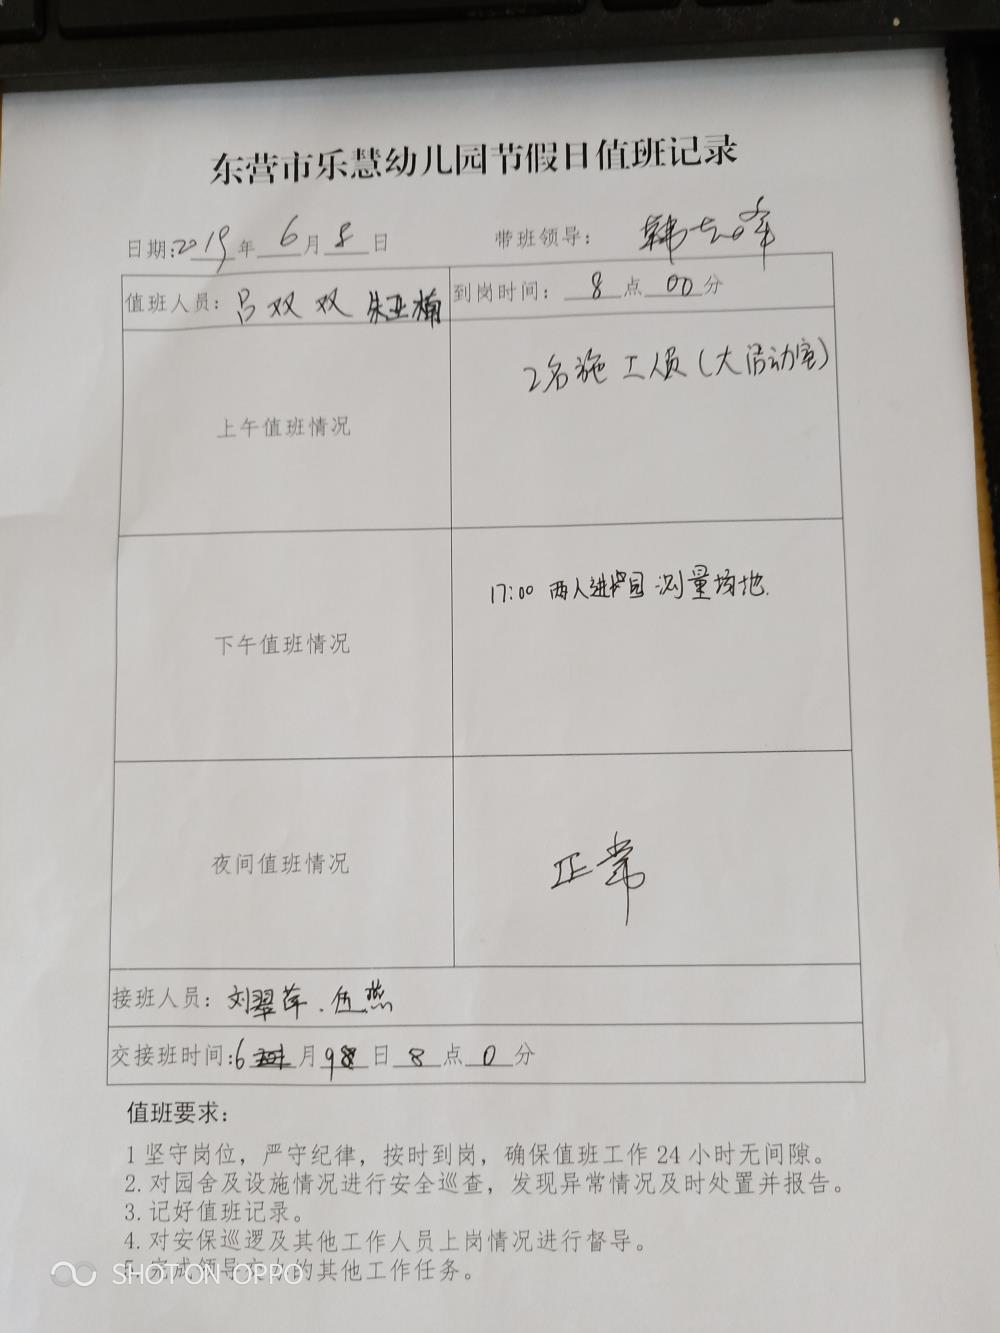 东营市乐慧幼儿园节假日值班记录
日期:2019年6月8日 带班领导：韩
值班人员：吕双双 朱亚楠 到岗时间：8点00分
上午值班情况 2名施工人员(大活动室)
下午值班情况 17:00 两人进园测量场地.
夜间值班情况 正常
接班人员：刘翠萍、伍燕
交接班时间:6月9日8点0分
值班要求：
1 坚守岗位，严守纪律，按时到岗，确保值班工作24小时无间隙。
2.对园舍及设施情况进行安全巡查，发现异常情况及时处置并报告。
3.记好值班记录。
4.对安保巡逻及其他工作人员上岗情况进行督导。
5.完成领导交办的其他工作任务。
SHOT ON OPPO